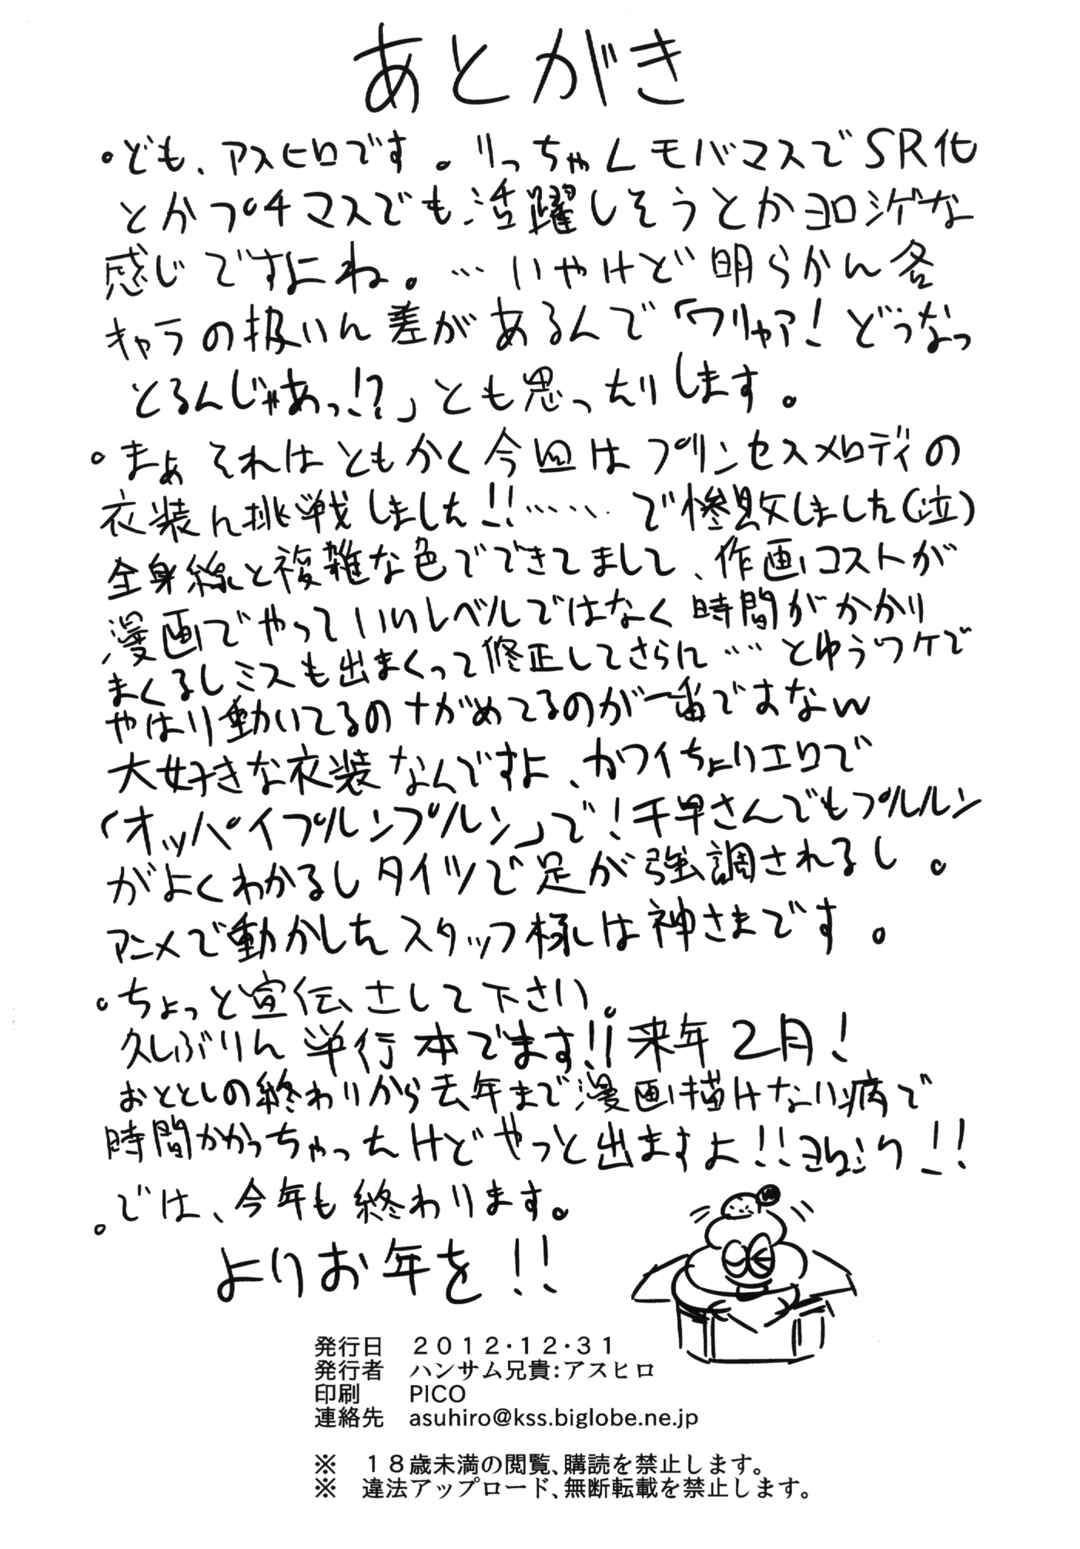 あとがき
。ども、アスヒロです。りっちゃんモバマスでSR化
とかプチマスでも活躍しそうとかヨロシゲな
感じですよね。…いやけど明らかに各
キャラの扱いに差があるんで「ワリャア!どうなっ
とるんじゃあっ!?」とも思ったりします。
。まぁそれはともかく今回はプリンセスメロディの
衣装に挑戦しました!!……で惨敗しました(泣)
全身線と複雑な色でできてまして、作画コストが
漫画でやっていいレベルではなく時間がかかり
まくるしミスも出まくって修正してさらに…とゆうワケで
やはり動いてるのナガめてるのが一番ですなw
大好きな衣装なんですよ、カワイちょりエロで
「オッパイプルンプルン」で!千早さんでもプルルン
がよくわかるしタイツで足が強調されるし。
アニメで動かしたスタッフ様は神さまです。
。ちょっと宣伝さして下さい。
久しぶりに単行本でます!!来年2月!
おととしの終わりから去年まで漫画描けない病で
時間かかっちゃったけどやっと出ますよ!!ヨロシク!!
。では、今年も終わります。
よりお年を!!
発行日 2012・12・31
発行者 ハンサム兄貴:アスヒロ
印刷 PICO
連絡先 asuhiro@kss.biglobe.ne.jp
※ 18歳未満の閲覧、購読を禁止します。
※ 違法アップロード、無断転載を禁止します。